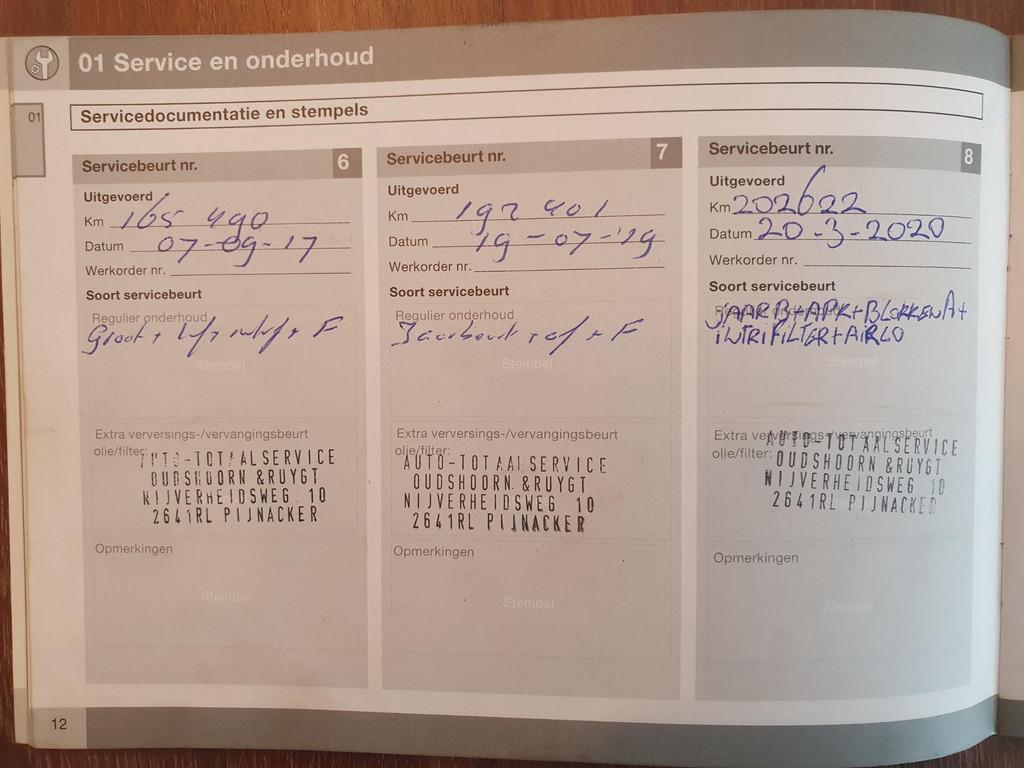 01 Service en onderhoud
01
Servicedocumentatie en stempels
Servicebeurt nr. 6
Uitgevoerd
Km 165 490
Datum 07-09-17
Werkorder nr.
Soort servicebeurt
Regulier onderhoud
Groot + + F
Stempel
Extra verversings-/vervangingsbeurt
olie/filter:
AUTO-TOTAALSERVICE
OUDSHOORN &RUYGT
NIJVERHEIDSWEG 10
2641RL PIJNACKER
Opmerkingen
Stempel
Servicebeurt nr. 7
Uitgevoerd
Km 192 401
Datum 19-07-'19
Werkorder nr.
Soort servicebeurt
Regulier onderhoud
Jaarbeurt + + F
Stempel
Extra verversings-/vervangingsbeurt
olie/filter:
AUTO-TOTAALSERVICE
OUDSHOORN &RUYGT
NIJVERHEIDSWEG 10
2641RL PIJNACKER
Opmerkingen
Stempel
Servicebeurt nr. 8
Uitgevoerd
Km 202622
Datum 20-3-2020
Werkorder nr.
Soort servicebeurt
Regulier onderhoud
JAARB+APK+BLOKKEN A+
INTRIFILTER+AIRCO
Stempel
Extra verversings-/vervangingsbeurt
olie/filter:
AUTO-TOTAALSERVICE
OUDSHOORN &RUYGT
NIJVERHEIDSWEG 10
2641RL PIJNACKER
Opmerkingen
Stempel
12